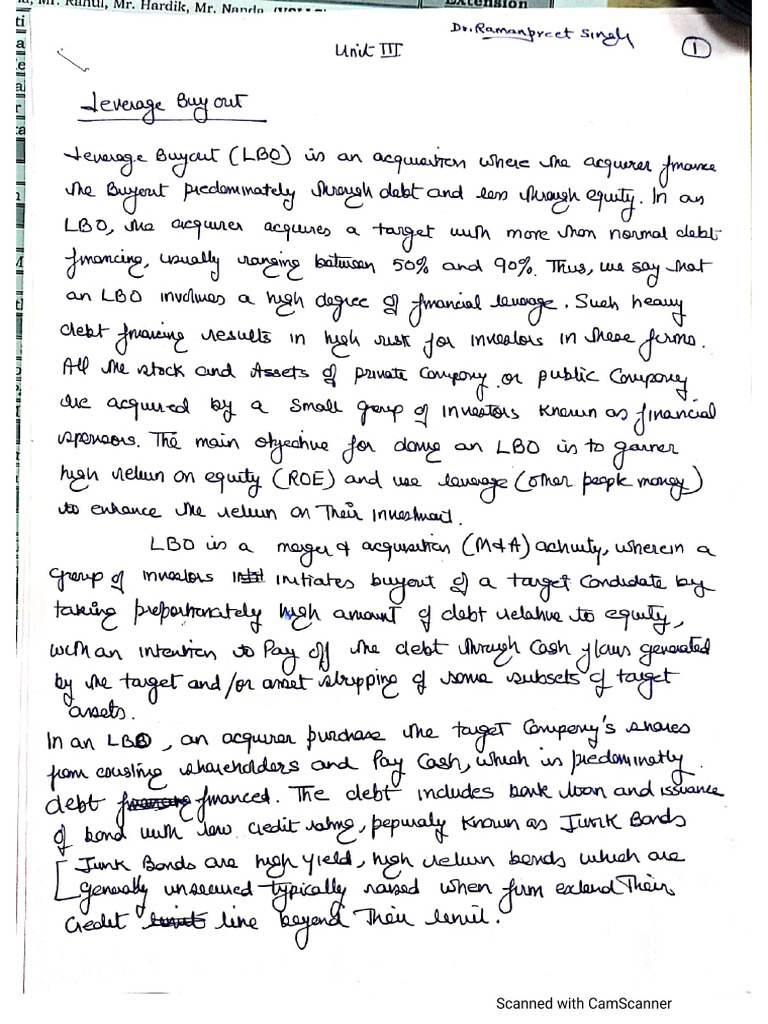 Mr. Rahul, Mr. Hardik, Mr. Nanda,
Extension
Dr. Ramanpreet Singh
Unit III
1
Leverage Buy out
Leverage Buyout (LBO) is an acquisition where the acquirer finance
the Buyout predominately through debt and less through equity. In an
LBO, the acquirer acquires a target with more than normal debt
financing, usually ranging between 50% and 90%. Thus, we say that
an LBO involves a high degree of financial leverage. Such heavy
debt financing results in high risk for investors in these firms.
All the stock and Assets of private Company or public Company
are acquired by a small group of investors known as financial
sponsors. The main objective for doing an LBO is to garner
high return on equity (ROE) and use leverage (other people money)
to enhance the return on Their Investment.
LBO is a merger & acquisition (M&A) activity, wherein a
group of investors initiates buyout of a target Candidate by
taking proportionately high amount of debt relative to equity,
with an intention to Pay off the debt through Cash flows generated
by the target and/or asset stripping of some subsets of target
assets.
In an LBO, an acquirer purchase the target Company's shares
from existing shareholders and Pay Cash, which is predominatly
debt financed. The debt includes bank loan and issuance
of bond with low credit rating, popularly known as Junk Bonds
Junk Bonds are high yield, high return bonds which are
generally unsecured typically raised when firm extend Their
Credit line beyond Their limit.
Scanned with CamScanner